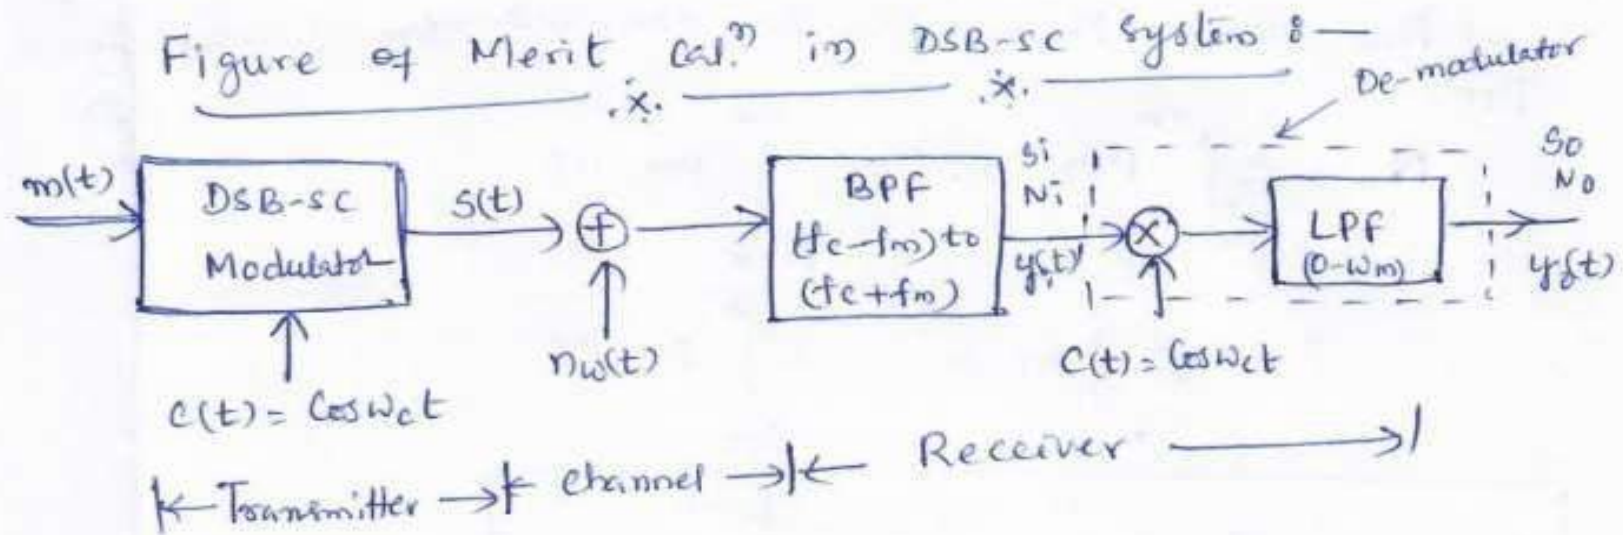 Figure of Merit Cal.n in DSB-SC System :—
De-modulator
m(t)
DSB-SC
Modulator
S(t)
+
nw(t)
BPF
(fc-fm) to
(fc+fm)
Si
Ni
yi(t)
X
LPF
(0-Wm)
So
No
C(t) = Coswct
C(t) = Coswct
Transmitter
Channel
Receiver